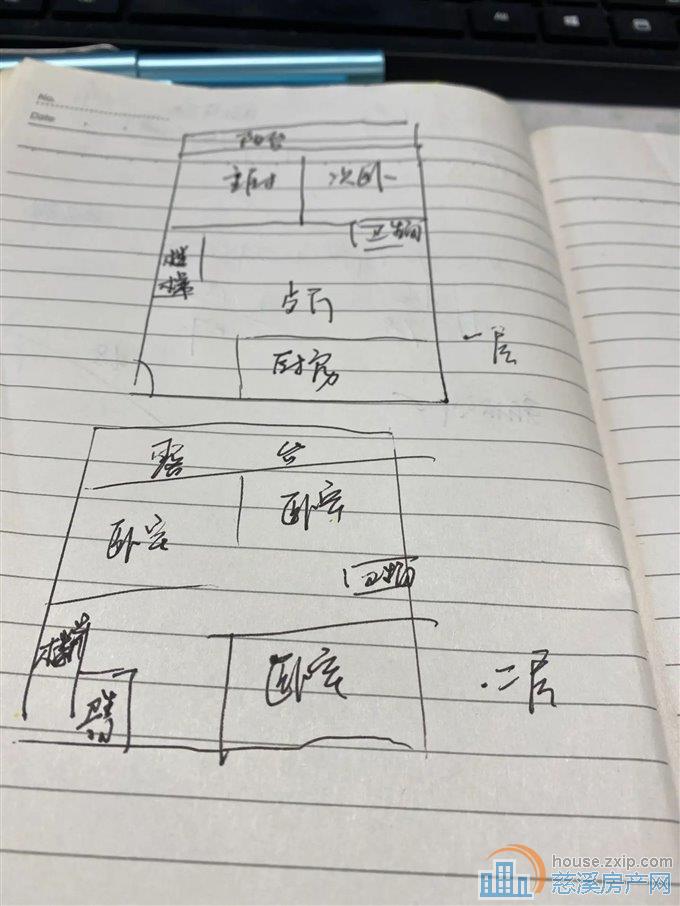 No.
Date
阳台
主卧 次卧
卫生间
楼梯
客厅
厨房
一层
露台
卧室 卧室
卫生间
楼梯
卧室
卫生间
二层
house.zxip.com
慈溪房产网